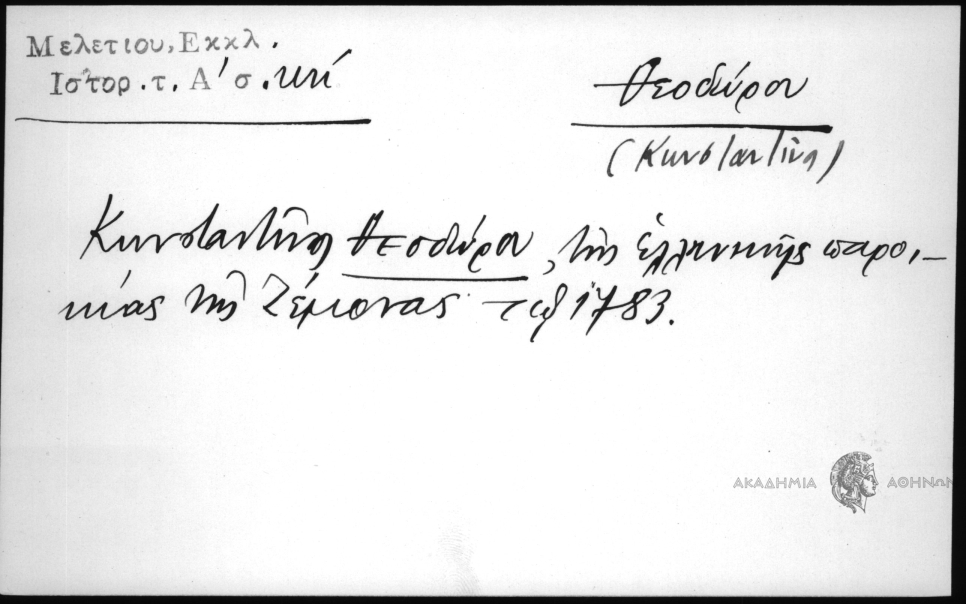 Μελετιου, Εκκλ.
Ιστορ. τ. Α' σ. κή
Θεοδώρου
(Κωνσταντίνος)
Κωνσταντίνος Θεοδώρου, τῆς ἑλληνικῆς παροι-
κίας τῆς Ζέμονας 1783.
ΑΚΑΔΗΜΙΑ ΑΘΗΝΩΝ